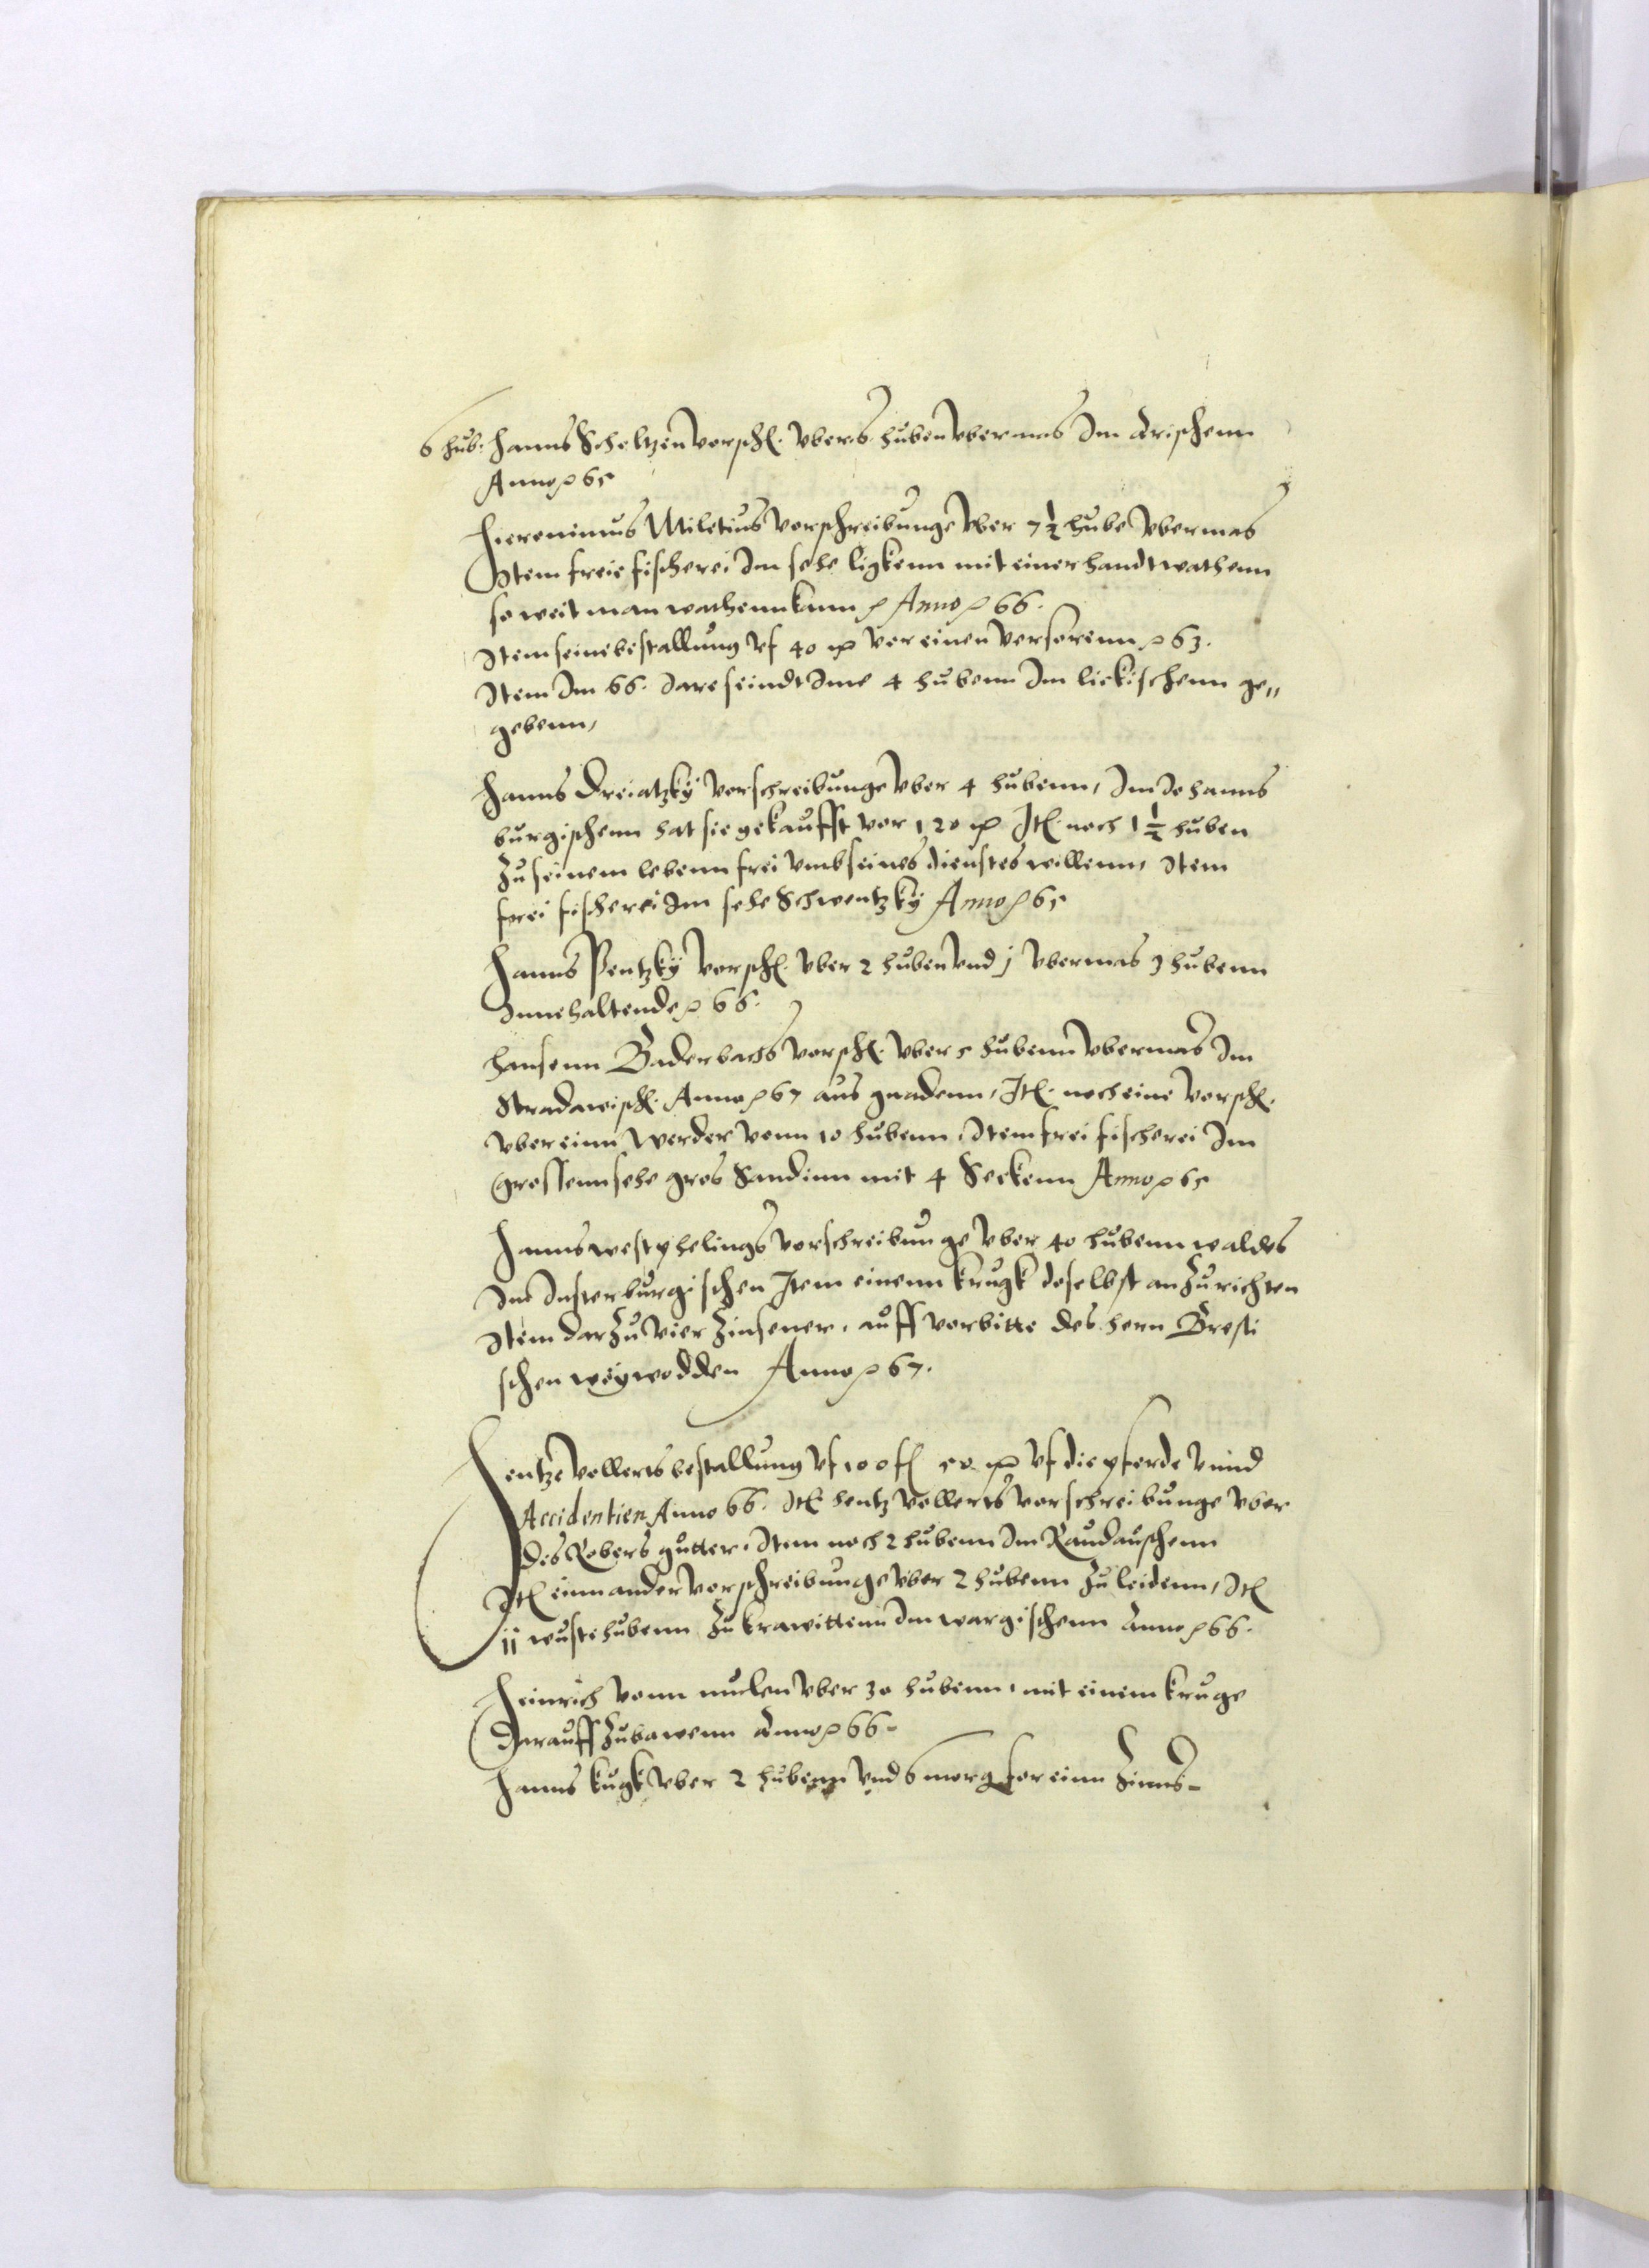 6 hub. Hanns Scheltzen vorsch. vber 6 huben vbermas Im Arischenn
Anno p 65
Hieronimus Miletius vorschreibunge vber 7 ½ hube vbermas
Item freie fischerei Im sehe ligkenn mit einer handtwathenn
so weit man wathenn kann p Anno p 66.
Item seine bestallung vf 40 mr vor einen verserenn p 63.
Item Im 66. Jare seindt Ime 4 hubenn Im lickischenn ge„
gebenn,
Hanns Dreiatzkÿ vorschreibunge vber 4 hubenn, Im Johanns
burgischenn hat sie gekaufft vor 120 mr Itl. noch 1 ½ huben
zu seinem lebenn frei vmb seines dienstes willenn, Item
frei fischerei Im sehe Schwentzkÿ Anno p 65
Hanns Pentzkÿ vorsch. vber 2 huben vnd j vbermas 3 hubenn
Innehaltende p 66.
Hansenn Baderbachs vorsch. vber 5 hubenn vbermas Im
Stradawisch. Anno p 67 aus gnadenn, Itl. noch eine vorsch.
vber einn Werder vonn 10 hubenn, Item frei fischerei Im
grossenn sehe gros Sandinn mit 4 Seckenn Anno p 65
Hanns westphelings vorschreibunge vber 40 hubenn waldes
Im Insterburgischen Item einenn krugk doselbst anzurichten
Item darzu vier Zinsener, auff vorbitte des hern Bresti
schen weÿwodden Anno p 67.
Hentze vollerts bestallung vf 100 fl 50 mr vf die pferde vnnd
Accidentien Anno 66. Itl. hentz vollerts vorschreibunge vber
des Robers gutter, Item noch 2 hubenn Im Raudauschenn
Itl. einn ander vorschreibunge vber 2 hubenn zu leidenn, Itl.
ij wuste hubenn zu krawittenn Im wargischenn Anno p 66.
Heinrich vonn mulen vber 30 hubenn, mit einem kruge
darauff zubawenn Anno p 66.
Hanns kugk vber 2 hubenn vnd 6 morg for einn Zinns.